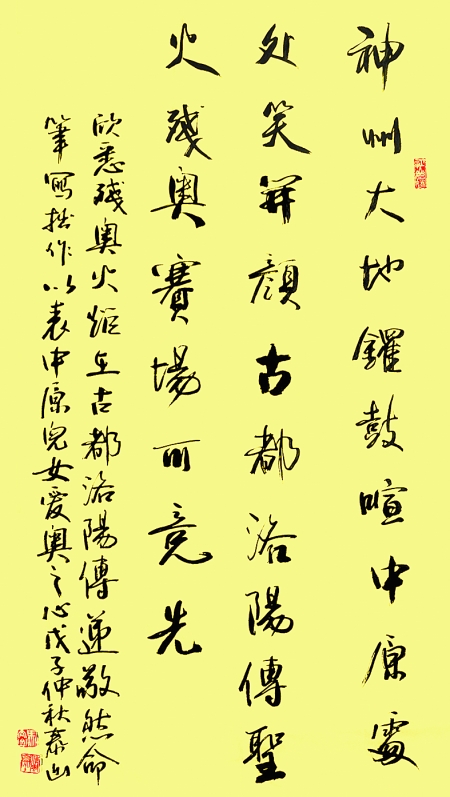 神州大地鑼鼓喧中原處
处笑開顏古都洛陽傳聖
火殘奧賽場竞先
欣悉殘奧火炬在古都洛陽傳遞然命
筆寫拙作以表中原兒女爱奧之心戊子仲秋泰山